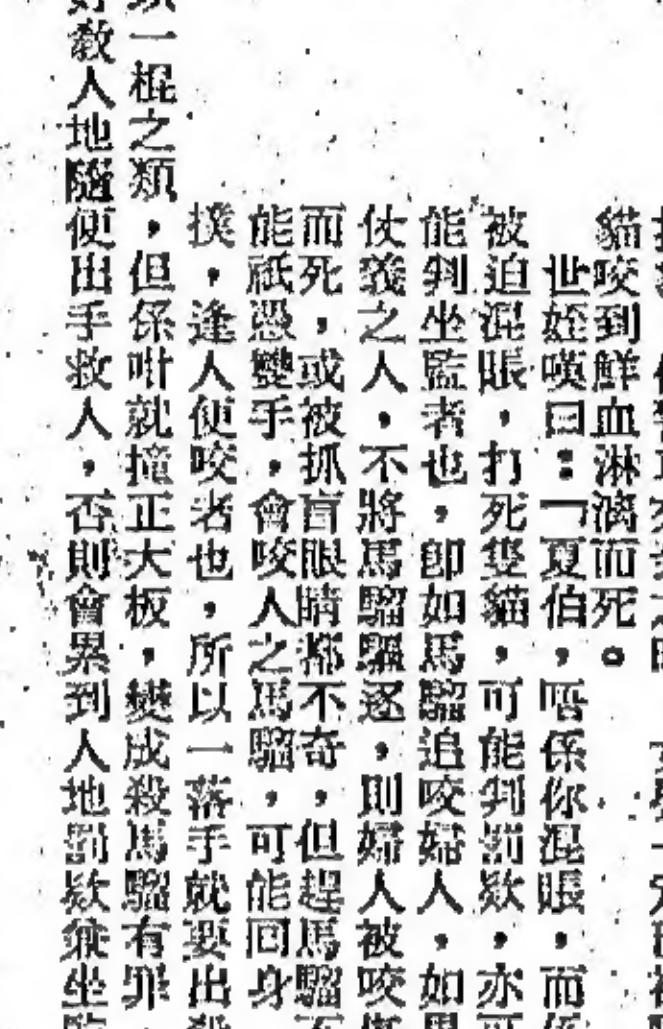 貓咬到鮮血淋漓而死。
世姪嘆曰：「夏伯，唔係你混賬，而係
被迫混賬，打死隻貓，可能判罰欵，亦可
能判坐監者也，卽如馬騮追咬婦人，如果
仗義之人，不將馬騮驅逐，則婦人被咬
而死，或被抓盲眼睛都不奇，但趕馬騮不
能祇憑雙手，會咬人之馬騮，可能回身
撲，逢人便咬者也，所以一落手就要出
一棍之類，但係咁就撞正大板，變成殺馬騮有罪，
好敎人地隨便出手救人，否則會累到人地罰欵兼坐監